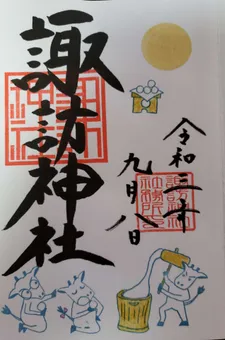 諏訪神社
令和三年
九月八日